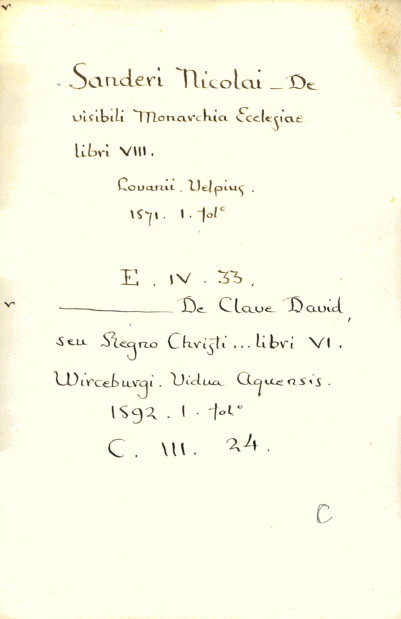 Sanderi Nicolai — De
visibili Monarchia Ecclesiae
libri VIII.
Lovanii. Velpius.
1571. 1. fol°
E. IV. 33.
——— De Clave David,
seu Regno Christi... libri VI.
Wirceburgi. Vidua Aquensis.
1592. 1. fol°
C. III. 24.
C